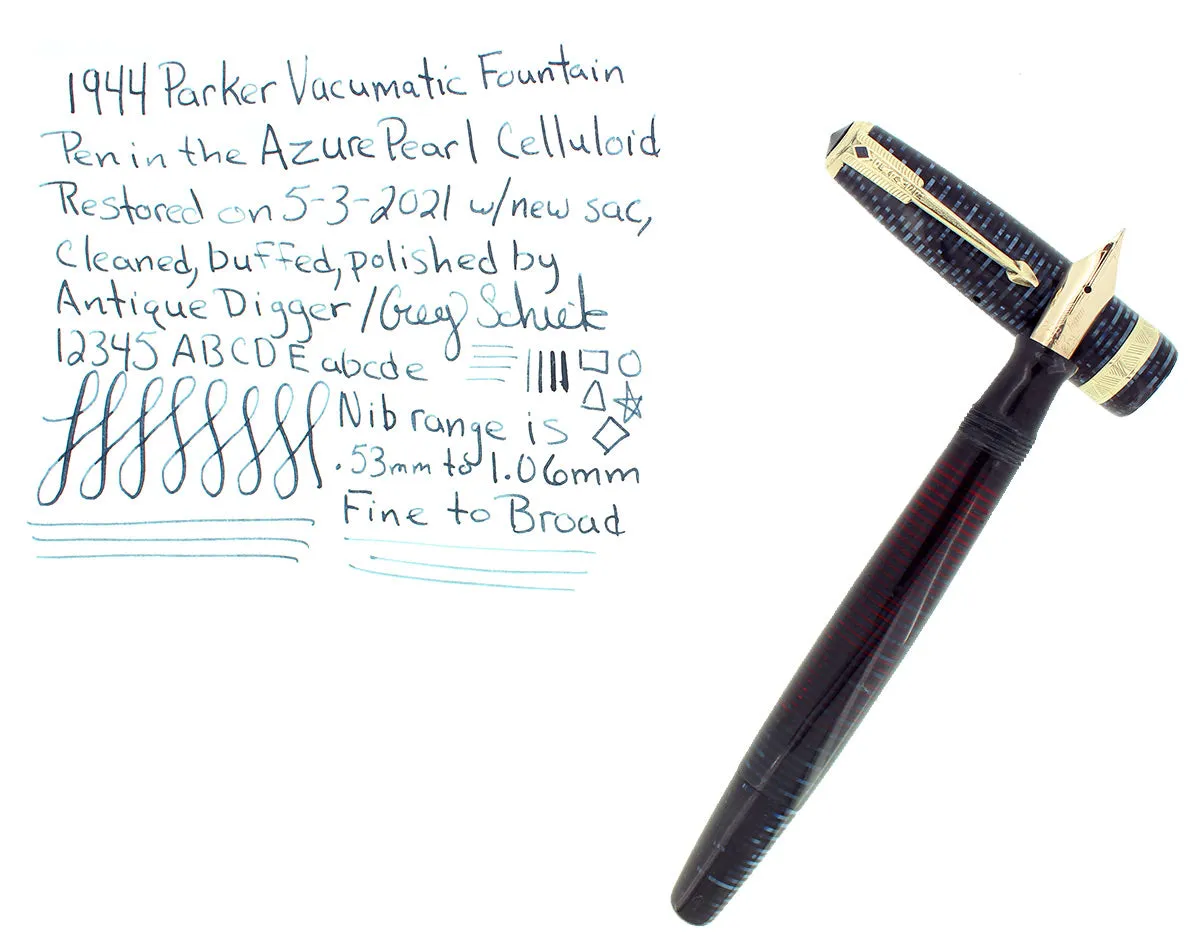 1944 Parker Vacumatic Fountain
Pen in the Azure Pearl Celluloid
Restored on 5-3-2021 w/new sac,
cleaned, buffed, polished by
Antique Digger/Greg
12345 ABCDE abcde
Nib range is
.53mm to 1.06mm
Fine to Broad